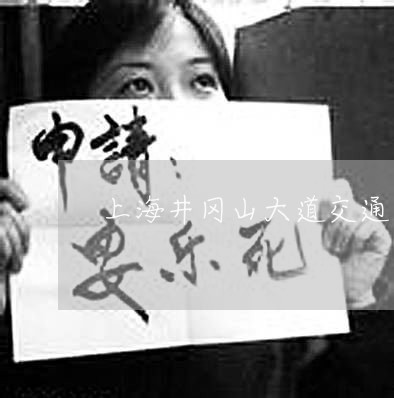 申請：
上海井冈山大道交通
要乐死